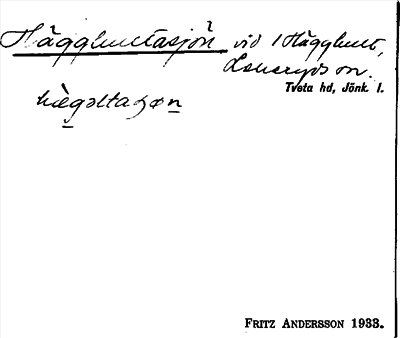 Hägghultasjön vid 1 Hägghult,
Lekeryds sn.
Tveta hd, Jönk. l.
hὲgəltaʃøn
FRITZ ANDERSSON 1933.